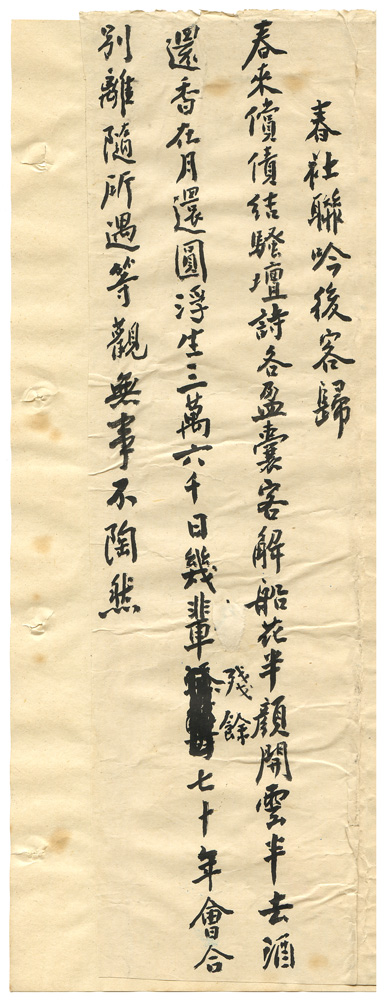 春社聯吟後客歸
春來償債結騷壇詩各盈囊客解船花半顏開雲半去酒
還香在月還圓浮生三萬六千日幾輩殘餘七十年會合
別離隨所遇等觀無事不陶然